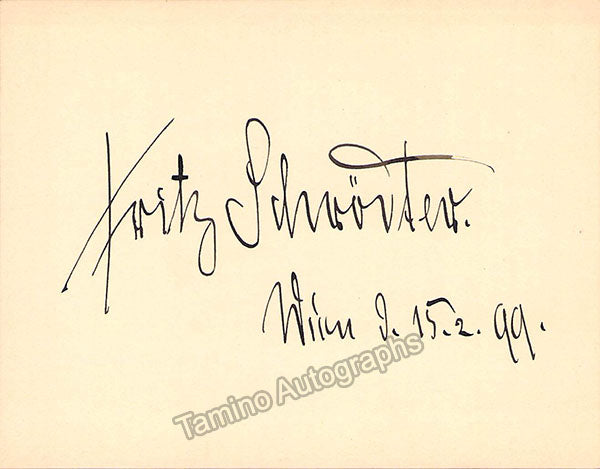 Fritz Schrödter.
Wien d. 15.2.99.
Tamino Autographs